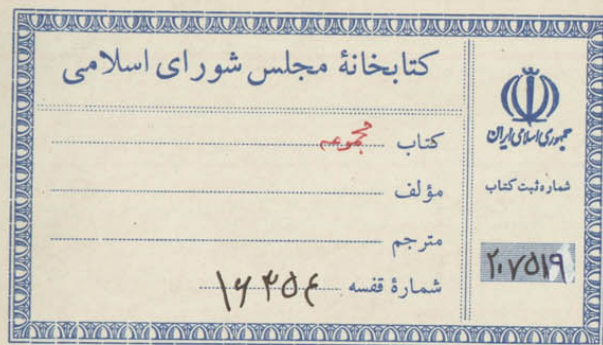 کتابخانهٔ مجلس شورای اسلامی
جمهوری اسلامی ایران
شماره ثبت کتاب
۲۰۷۵۱۹
کتاب مجموعه
مؤلف
مترجم
شمارهٔ قفسه ۱۶۳۵۴